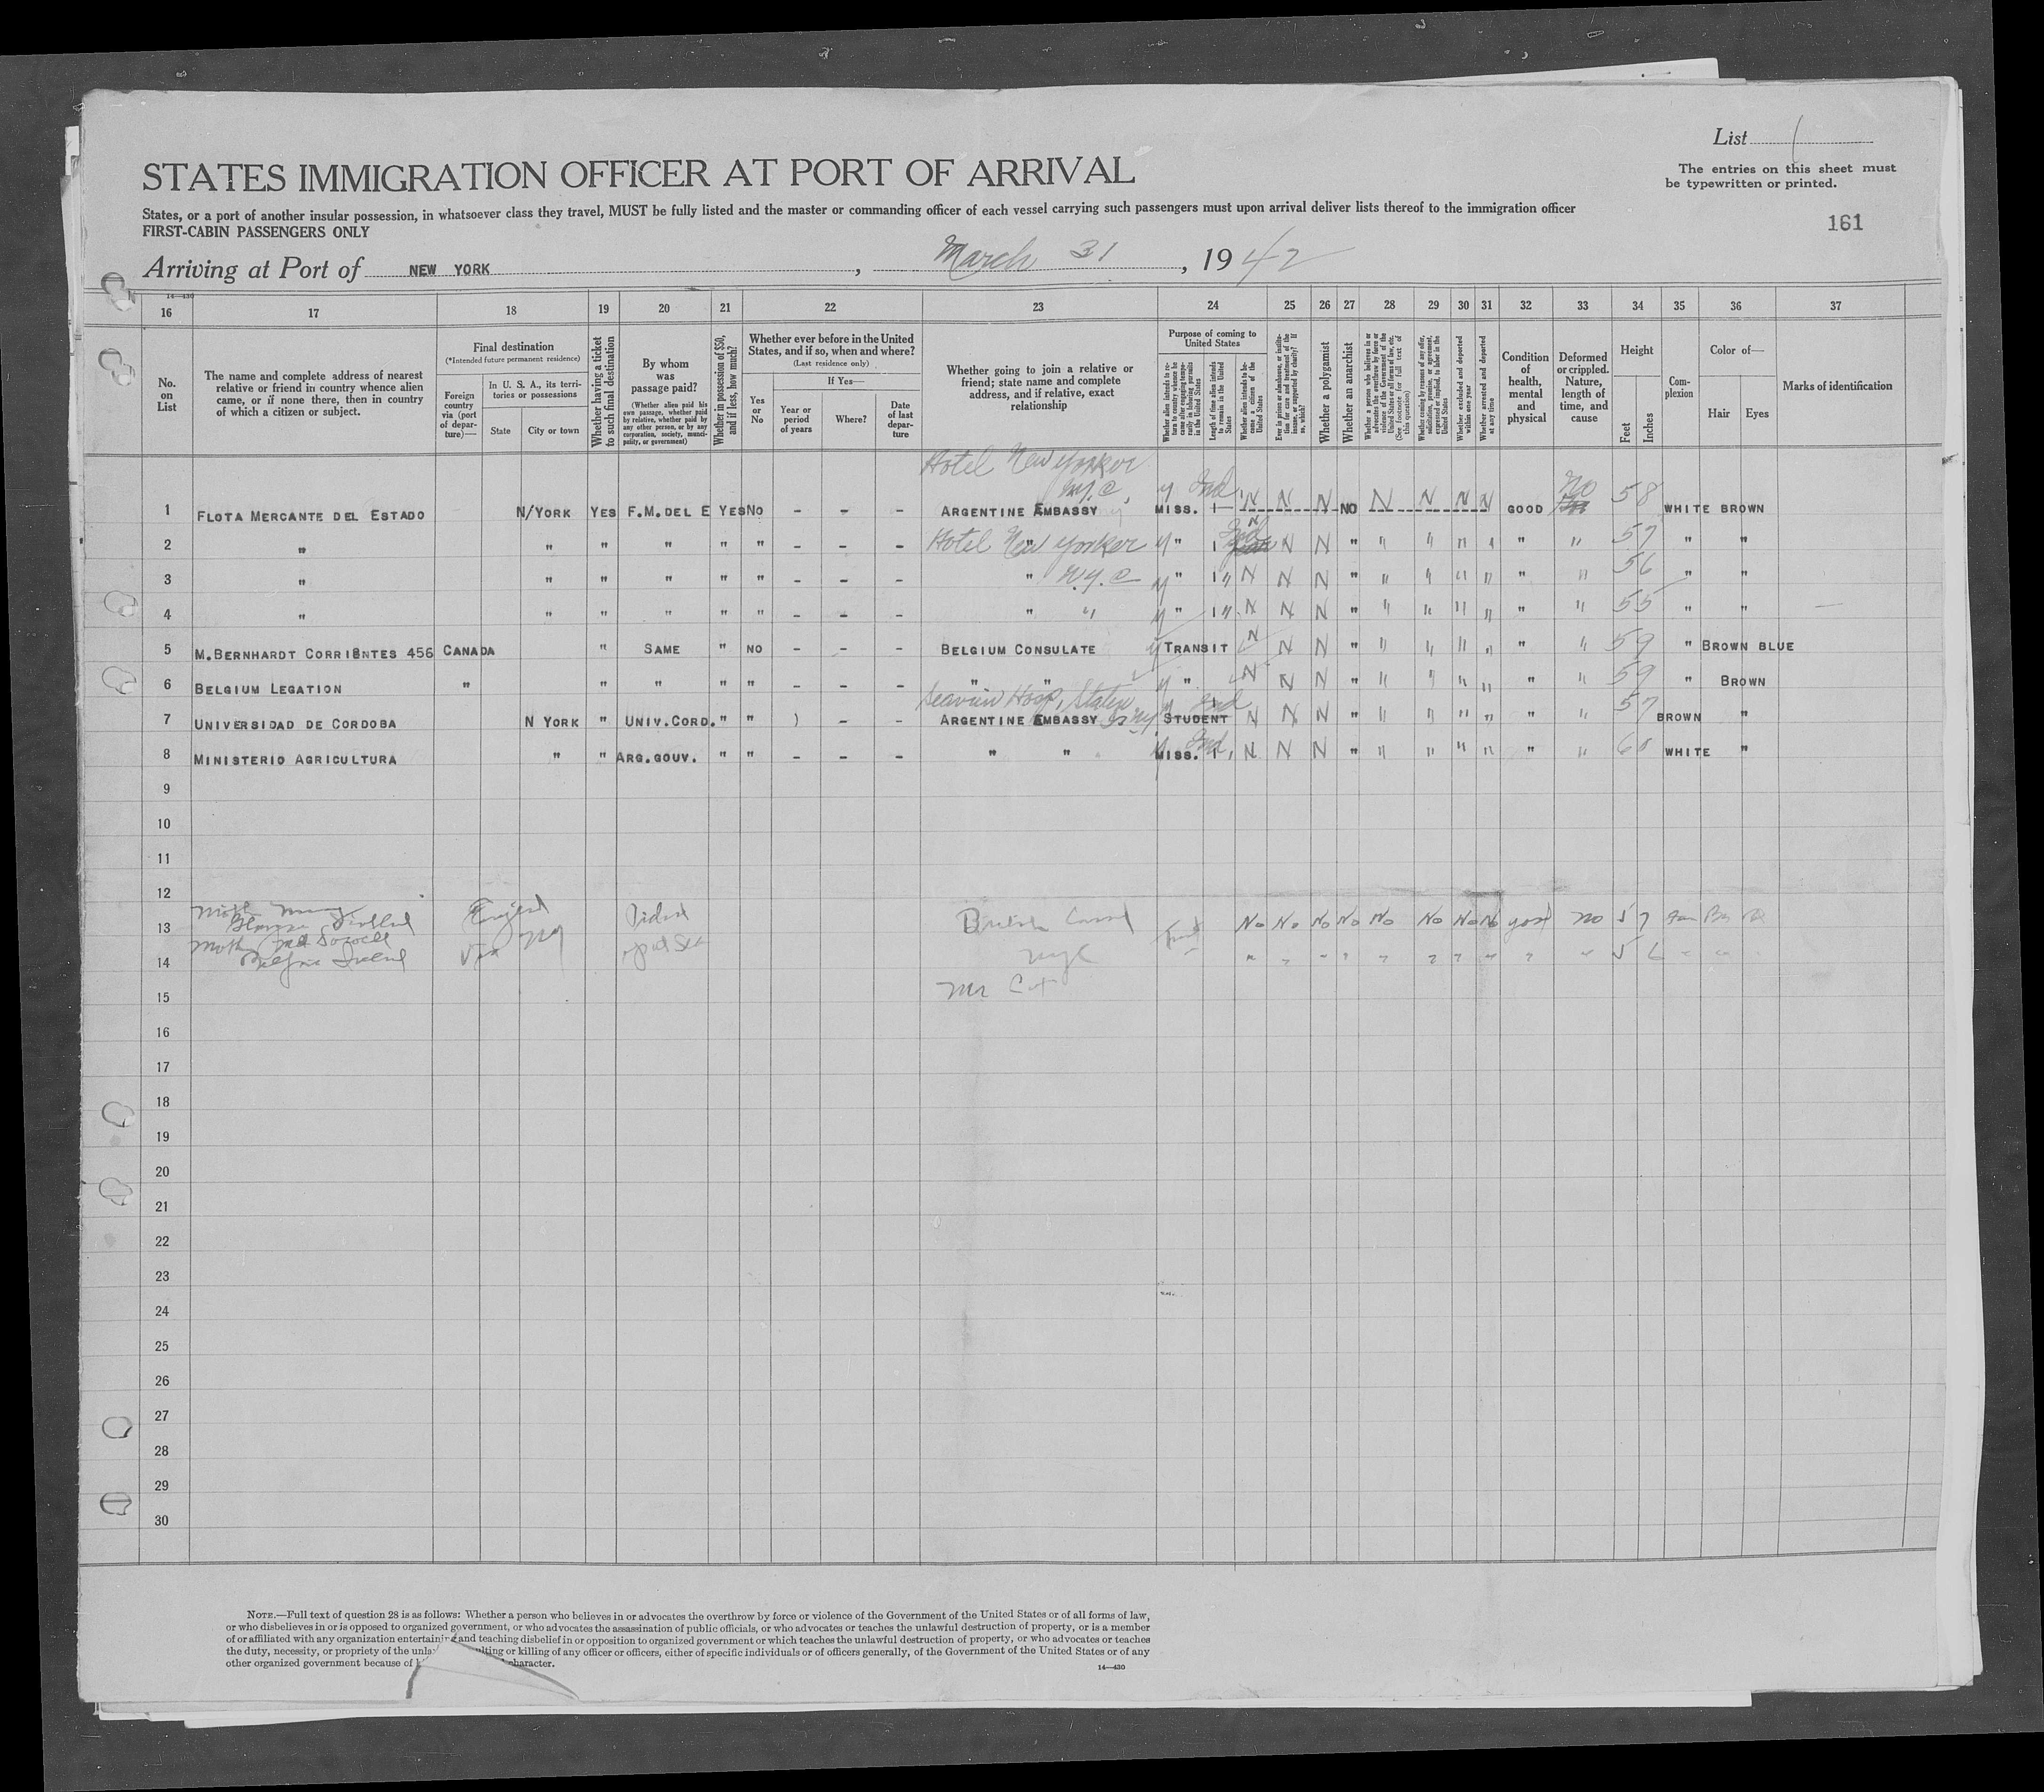 List
The entries on this sheet must
be typewritten or printed.
STATES IMMIGRATION OFFICER AT PORT OF ARRIVAL
States, or a port of another insular possession, in whatsoever class they travel, MUST be fully listed and the master or commanding officer of each vessel carrying such passengers must upon arrival deliver lists thereof to the immigration officer
FIRST-CABIN PASSENGERS ONLY
161
Arriving at Port of NEW YORK, March 31, 1942
14—430
16 17 18 19 20 21 22 23 24 25 26 27 28 29 30 31 32 33 34 35 36 37
No. on List
The name and complete address of nearest relative or friend in country whence alien came, or if none there, then in country of which a citizen or subject.
Final destination
(*Intended future permanent residence)
Foreign country via (port of departure)—
In U. S. A., its territories or possessions
State
City or town
Whether having a ticket to such final destination
By whom was passage paid?
(Whether alien paid his own passage, whether paid by relative, whether paid by any other person, or by any corporation, society, municipality, or government)
Whether in possession of $50, and if less, how much?
Whether ever before in the United States, and if so, when and where?
(Last residence only)
Yes or No
If Yes—
Year or period of years
Where?
Date of last departure
Whether going to join a relative or friend; state name and complete address, and if relative, exact relationship
Purpose of coming to United States
Whether alien intends to return to country whence he came after engaging temporarily in laboring pursuits in the United States
Length of time alien intends to remain in the United States
Whether alien intends to become a citizen of the United States
Ever in prison or almshouse, or institution for care and treatment of the insane, or supported by charity? If so, which?
Whether a polygamist
Whether an anarchist
Whether a person who believes in or advocates the overthrow by force or violence of the Government of the United States or all forms of law, etc. (See footnote for full text of this question)
Whether coming by reason of any offer, solicitation, promise, or agreement, expressed or implied, to labor in the United States
Whether excluded and deported within one year
Whether arrested and deported at any time
Condition of health, mental and physical
Deformed or crippled. Nature, length of time, and cause
Height
Feet
Inches
Complexion
Color of—
Hair
Eyes
Marks of identification
Hotel New Yorker
N.Y.C.
1 FLOTA MERCANTE DEL ESTADO N/YORK YES F.M. DEL E YES NO - - - ARGENTINE EMBASSY y MISS. Ind N N N NO N N N N GOOD No 5 8 WHITE BROWN
2 " " " " " " - - - Hotel New Yorker y " N N N " " " " " " " 5 7 " "
3 " " " " " " - - - " N.Y.C y " " N N N " " " " " " " 5 6 " "
4 " " " " " " - - - " " y " " N N N " " " " " " " 5 5 " "
5 M.BERNHARDT CORRIENTES 456 CANADA " SAME " NO - - - BELGIUM CONSULATE y TRANSIT N N N " " " " " " " 5 9 " BROWN BLUE
6 BELGIUM LEGATION " " " " " - - - " " y " N N N " " " " " " " 5 9 " BROWN
Seaview Hosp, Staten
7 UNIVERSIDAD DE CORDOBA N YORK " UNIV.CORD. " " ) - - ARGENTINE EMBASSY STUDENT Ind N N N " " " " " " " 5 7 BROWN "
8 MINISTERIO AGRICULTURA " " ARG.GOUV. " " - - - " " MISS. Ind N N N " " " " " " " 6 0 WHITE "
9
10
11
12
13 No No No No No No No No good no 5 7
14 " " " " " " " " " " 5 6
15
16
17
18
19
20
21
22
23
24
25
26
27
28
29
30
NOTE.—Full text of question 28 is as follows: Whether a person who believes in or advocates the overthrow by force or violence of the Government of the United States or of all forms of law,
or who disbelieves in or is opposed to organized government, or who advocates the assassination of public officials, or who advocates or teaches the unlawful destruction of property, or is a member
of or affiliated with any organization entertaining and teaching disbelief in or opposition to organized government or which teaches the unlawful destruction of property, or who advocates or teaches
the duty, necessity, or propriety of the unla ulting or killing of any officer or officers, either of specific individuals or of officers generally, of the Government of the United States or of any
other organized government because of character.
14—430